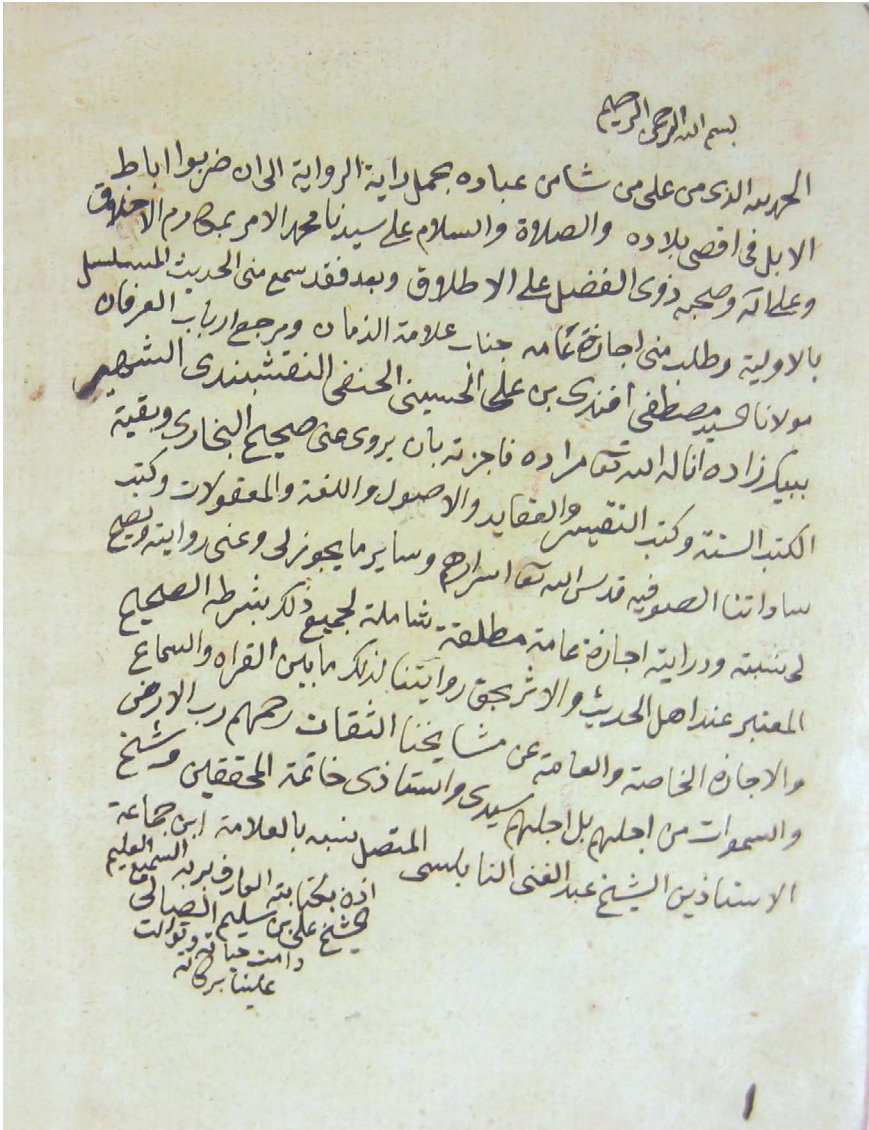 بسم الله الرحمن الرحيم
الحمد لله الذي من على من شا من عباده بحمل راية الرواية الى ان ضربوا اباط
الابل في اقصى بلاده والصلاة والسلام على سيدنا محمد الامر بمكارم الاخلاق
وعلى اله وصحبه ذوى الفضل على الاطلاق وبعد فقد سمع منى الحديث المسلسل
بالاولية وطلب منى اجازة عامه جناب علامة الزمان ومرجع ارباب العرفان
مولانا السيد مصطفى افندى بن على الحسينى الحنفى النقشبندى الشهير
ببيكرزاده اناله الله تعا مراده فاجزته بان يروى عنى صحيح البخارى وبقية
الكتب الستة وكتب التفيسر والعقايد والاصول واللغة والمعقولات وكتب
ساداتنا الصوفيه قدس الله تعا اسرارهم وساير ما يجوز لى وعنى روايته ويصح
لى نسبته ودرايته اجازة عامة مطلقة شاملة لجميع ذلك بشرطه الصحيح
المعتبر عند اهل الحديث والاثر بحق روايتنا لذلك ما بين القراه والسماع
والاجازه الخاصة والعامة عن مشايخنا الثقات رحمهم رب الارض
والسموات من اجلهم بل اجلهم سيدى واستاذى خاتمة المحققين وشيخ
الاستاذين الشيخ عبد الغنى النابلسى المتصل نسبه بالعلامة ابن جماعة
اذن بكتابته العارف بربه السميع العليم
الشيخ على بن سليم الصالحى
دامت حياته وتوالت
علينا بركاته
١